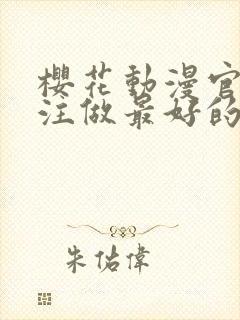 櫻花動漫官
注做最好的
朱佑偉